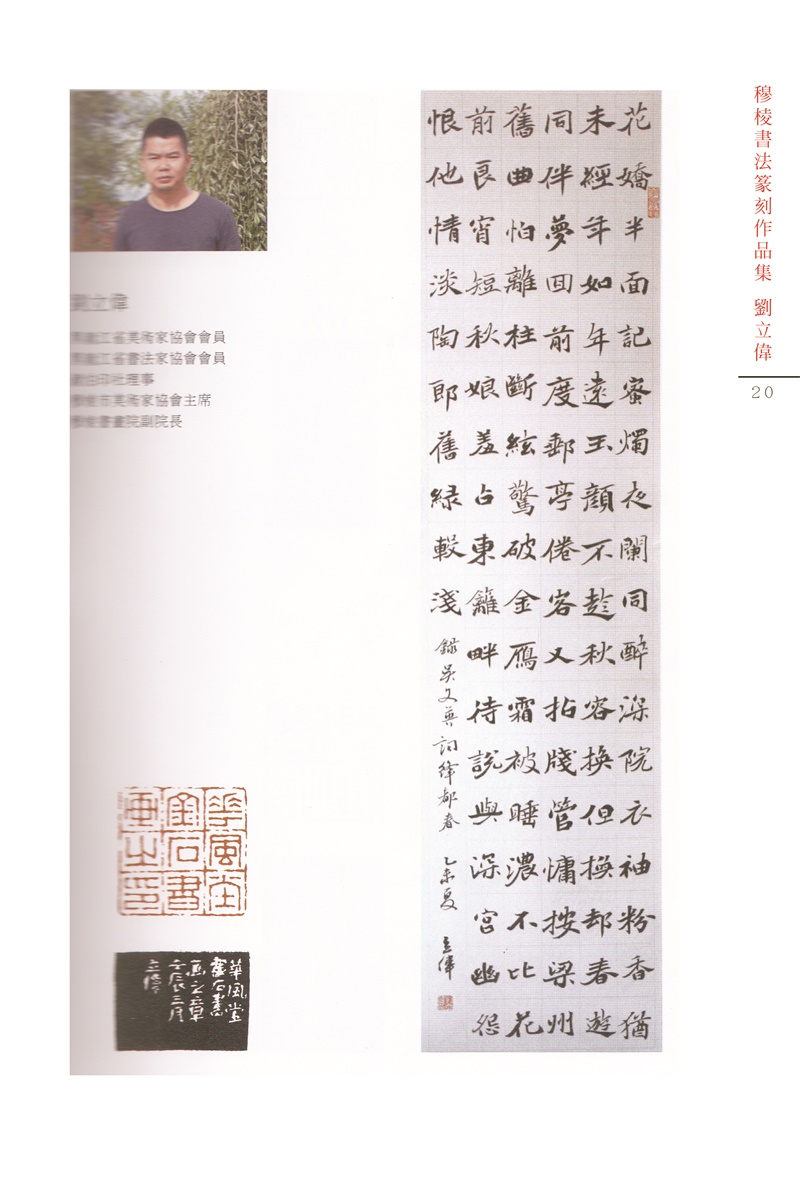 穆棱書法篆刻作品集 劉立偉
20
花嬌半面記蜜燭夜闌同醉深院衣袖粉香猶
未經年如年遠玉顏不趁秋容換但換却春遊
同伴夢回前度郵亭倦客又拈牋管慵按梁州
舊曲怕離柱斷絃驚破金雁霜被睡濃不比花
前良宵短秋娘羞占東籬畔待說與深宮幽怨
恨他情淡陶郎舊緑較淺
錄吳文英詞絳都春 乙未夏 立偉
劉立偉
黑龍江省美術家協會會員
黑龍江省書法家協會會員
印社理事
穆棱市美術家協會主席
穆棱書畫院副院長
華風堂
金石書
畫之印
華風堂
金石書
畫之章
壬辰三月
立偉